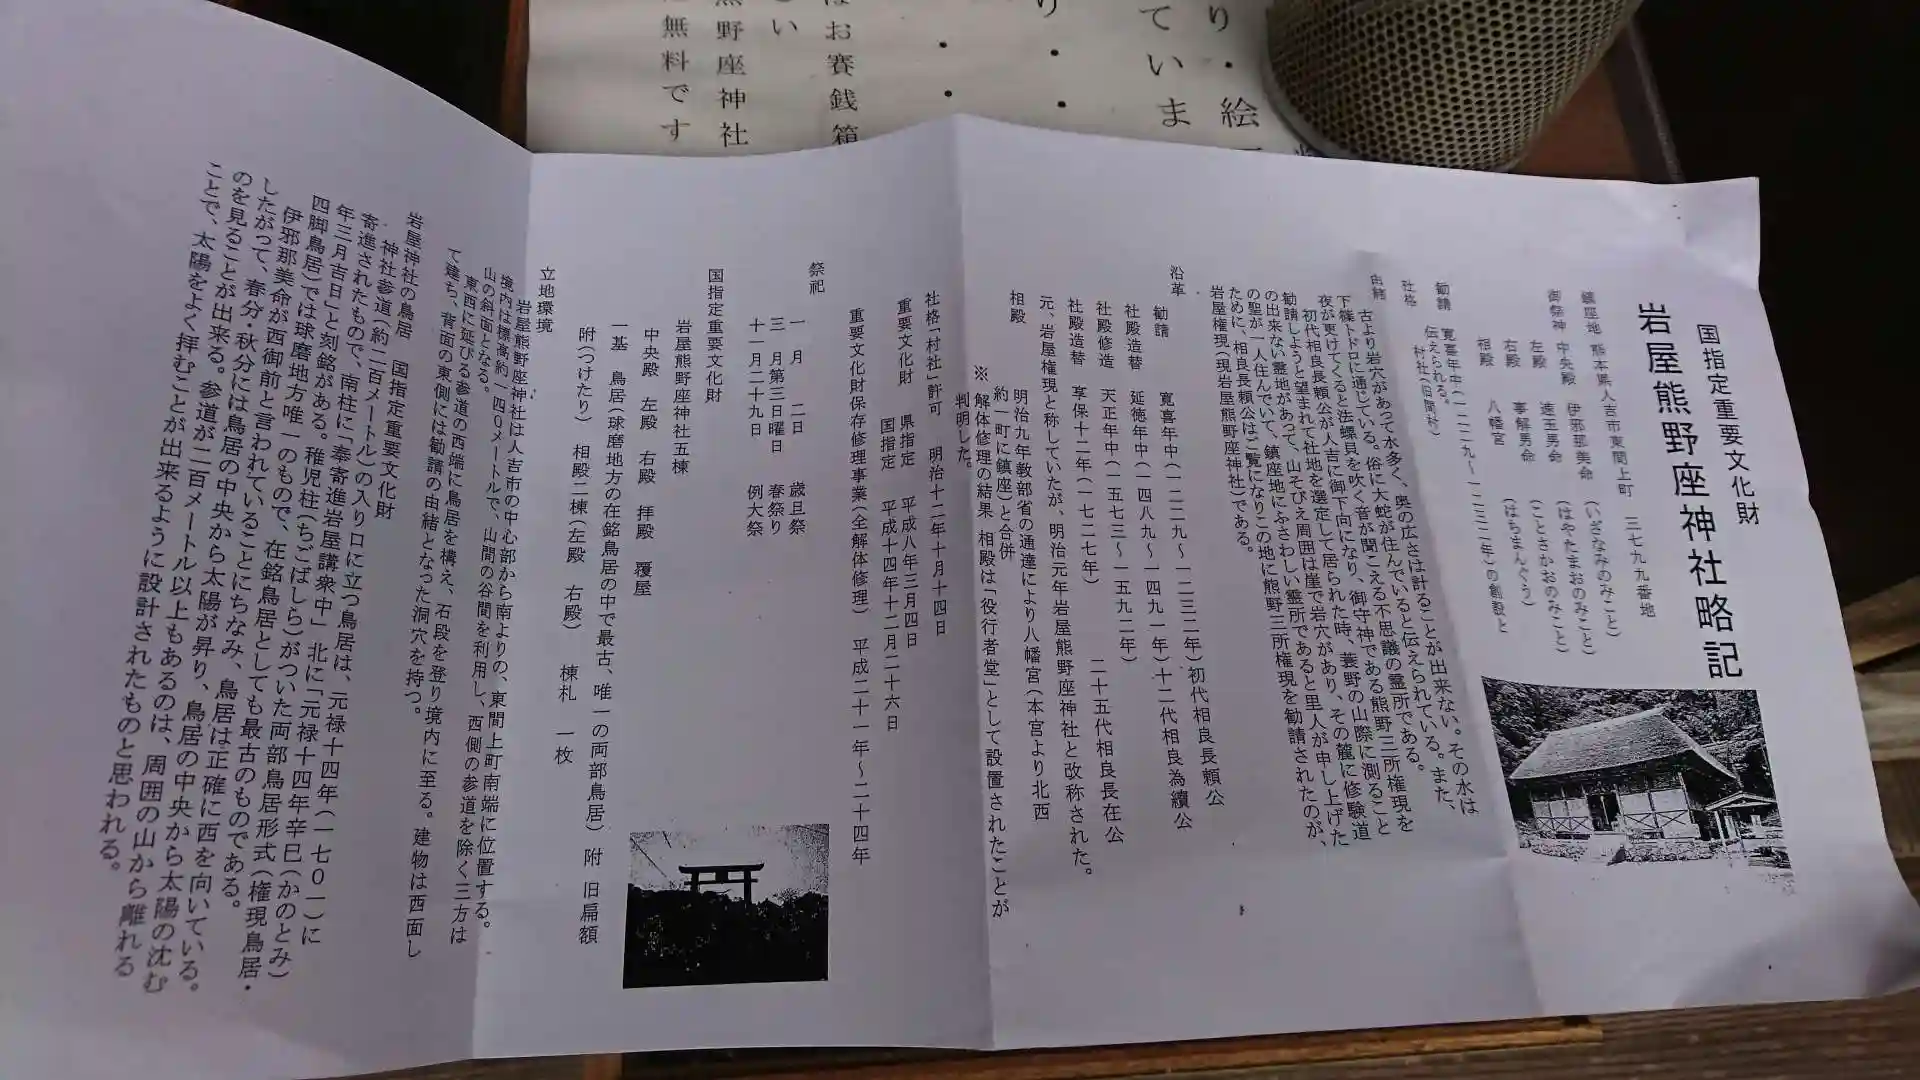 国指定重要文化財
岩屋熊野座神社略記
鎮座地 熊本県人吉市東間上町 三七九九番地
御祭神 中央殿 伊邪那美命 (いざなみのみこと)
左殿 速玉男命 (はやたまおのみこと)
右殿 事解男命 (ことさかおのみこと)
相殿 八幡宮 (はちまんぐう)
勧請 寛喜年中(一二二九~一二三二年)の創設と
伝えられる。
社格 村社(旧間村)
由緒
古より岩穴があって水多く、奥の広さは計ることが出来ない。その水は
下篠トドロに通じている。俗に大蛇が住んでいると伝えられている。また、
夜が更けてくると法螺貝を吹く音が聞こえる不思議の霊所である。
初代相良長頼公が人吉に御下向になり、御守神である熊野三所権現を
勧請しようと望まれて社地を選定して居られた時、蓑野の山際に測ること
の出来ない霊地があって、山そびえ周囲は崖で岩穴があり、その麓に修験道
の聖が一人住んでいて、鎮座地にふさわしい霊所であると里人が申し上げた
ために、相良長頼公はご覧になりこの地に熊野三所権現を勧請されたのが、
岩屋権現(現岩屋熊野座神社)である。
沿革
勧請 寛喜年中(一二二九~一二三二年)初代相良長頼公
社殿造替 延徳年中(一四八九~一四九一年)十二代相良為續公
社殿修造 天正年中(一五七三~一五九二年)
社殿造替 享保十二年(一七二七年) 二十五代相良長在公
元、岩屋権現と称していたが、明治元年岩屋熊野座神社と改称された。
相殿 明治九年教部省の通達により八幡宮(本宮より北西
約一町に鎮座)と合併
※ 解体修理の結果 相殿は「役行者堂」として設置されたことが
判明した。
社格「村社」許可 明治十二年十月十四日
重要文化財 県指定 平成八年三月四日
国指定 平成十四年十二月二十六日
重要文化財保存修理事業(全解体修理) 平成二十一年~二十四年
祭祀
一月 二日 歳旦祭
三月第三日曜日 春祭り
十一月二十九日 例大祭
国指定重要文化財
岩屋熊野座神社五棟
中央殿 左殿 右殿 拝殿 覆屋
一基 鳥居(球磨地方の在銘鳥居の中で最古、唯一の両部鳥居) 附 旧扁額
附(つけたり) 相殿二棟(左殿 右殿) 棟札 一枚
立地環境
岩屋熊野座神社は人吉市の中心部から南よりの、東間上町南端に位置する。
境内は標高約一四〇メートルで、山間の谷間を利用し、西側の参道を除く三方は
山の斜面となる。
東西に延びる参道の西端に鳥居を構え、石段を登り境内に至る。建物は西面し
て建ち、背面の東側には勧請の由緒となった洞穴を持つ。
岩屋神社の鳥居 国指定重要文化財
神社参道(約二百メートル)の入り口に立つ鳥居は、元禄十四年(一七〇一)に
寄進されたもので、南柱に「奉寄進岩屋講衆中」北に「元禄十四年辛巳(かのとみ)
年三月吉日」と刻銘がある。稚児柱(ちごばしら)がついた両部鳥居形式(権現鳥居・
四脚鳥居)では球磨地方唯一のもので、在銘鳥居としても最古のものである。
伊邪那美命が西御前と言われていることにちなみ、鳥居は正確に西を向いている。
したがって、春分・秋分には鳥居の中央から太陽が昇り、鳥居の中央から太陽の沈む
のを見ることが出来る。参道が二百メートル以上もあるのは、周囲の山から離れる
ことで、太陽をよく拝むことが出来るように設計されたものと思われる。
り・絵
ていま
り・・
はお賽銭箱
い
熊野座神社
無料です